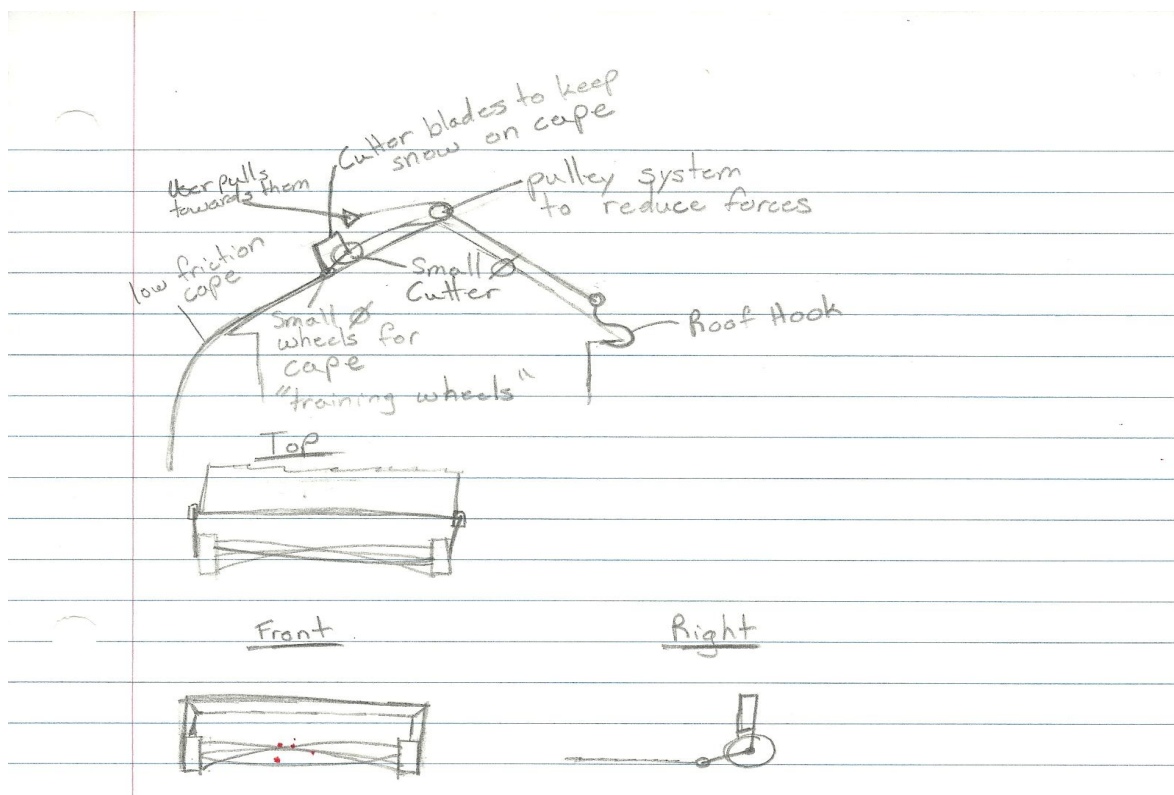 Cutter blades to keep
snow on cape
User pulls
towards them
pulley system
to reduce forces
low friction
cape
Small Ø
Cutter
Small Ø
wheels for
cape
"training wheels"
Roof Hook
Top
Front
Right